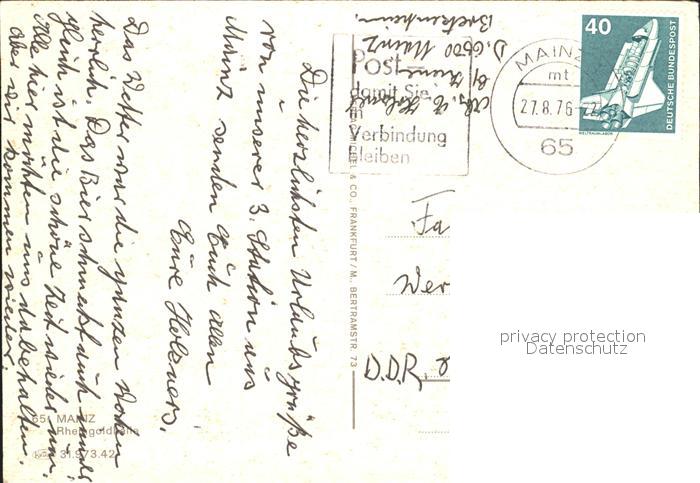 Die herzlichsten Urlaubsgrüße
von unserer 3. Station aus
Mainz senden Euch allen
Eure Holzners.
Das Wetter war die ganzen Wochen
herrlich. Das Bier schmeckt auch immer,
gleich ist die schöne Zeit wieder um.
Alle hier möchten uns dabehalten.
Aber wir kommen wieder.
D. 6500 Mainz
Bretzenheim
Post—
damit Sie
in
Verbindung
bleiben
MAINZ
mt
27.8.76
65
40
DEUTSCHE BUNDESPOST
WELTRAUMLABOR
& CO., FRANKFURT/M., BERTRAMSTR. 73
Fa
Wer
D.D.R.
privacy protection
Datenschutz
65 MAINZ
Rheingoldhalle
31.973.42